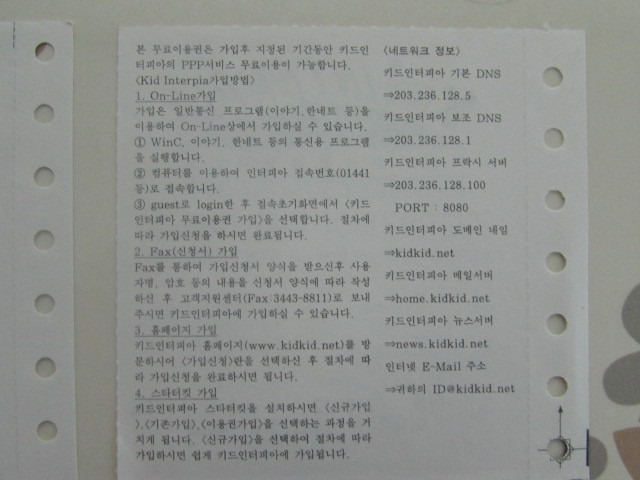 본 무료이용권은 가입후 지정된 기간동안 키드인
터피아의 PPP서비스 무료이용이 가능합니다.
〈Kid Interpia가입방법〉
1. On-Line가입
가입은 일반통신 프로그램(이야기,한네트 등)을
이용하여 On-Line상에서 가입하실 수 있습니다.
① WinC, 이야기, 한네트 등의 통신용 프로그램
을 실행합니다.
② 컴퓨터를 이용하여 인터피아 접속번호(01441
등)로 접속합니다.
③ guest로 login한 후 접속초기화면에서 〈키드
인터피아 무료이용권 가입〉을 선택합니다. 절차에
따라 가입신청을 하시면 완료됩니다.
2. Fax(신청서) 가입
Fax를 통하여 가입신청서 양식을 받으신후 사용
자명, 암호 등의 내용을 신청서 양식에 따라 작성
하신 후 고객지원센터(Fax:3443-8811)로 보내
주시면 키드인터피아에 가입하실 수 있습니다.
3. 홈페이지 가입
키드인터피아 홈페이지(www.kidkid.net)를 방
문하시어 〈가입신청〉란을 선택하신 후 절차에 따
라 가입신청을 완료하시면 됩니다.
4. 스타터킷 가입
키드인터피아 스타터킷을 설치하시면 〈신규가입
〉,〈기존가입〉,〈이용권가입〉을 선택하는 과정을 거
치게 됩니다. 〈신규가입〉을 선택하여 절차에 따라
가입하시면 쉽게 키드인터피아에 가입됩니다.
〈네트워크 정보〉
키드인터피아 기본 DNS
⇒203.236.128.5
키드인터피아 보조 DNS
⇒203.236.128.1
키드인터피아 프락시 서버
⇒203.236.128.100
PORT : 8080
키드인터피아 도메인 네임
⇒kidkid.net
키드인터피아 메일서버
⇒home.kidkid.net
키드인터피아 뉴스서버
⇒news.kidkid.net
인터넷 E-Mail 주소
⇒귀하의 ID@kidkid.net